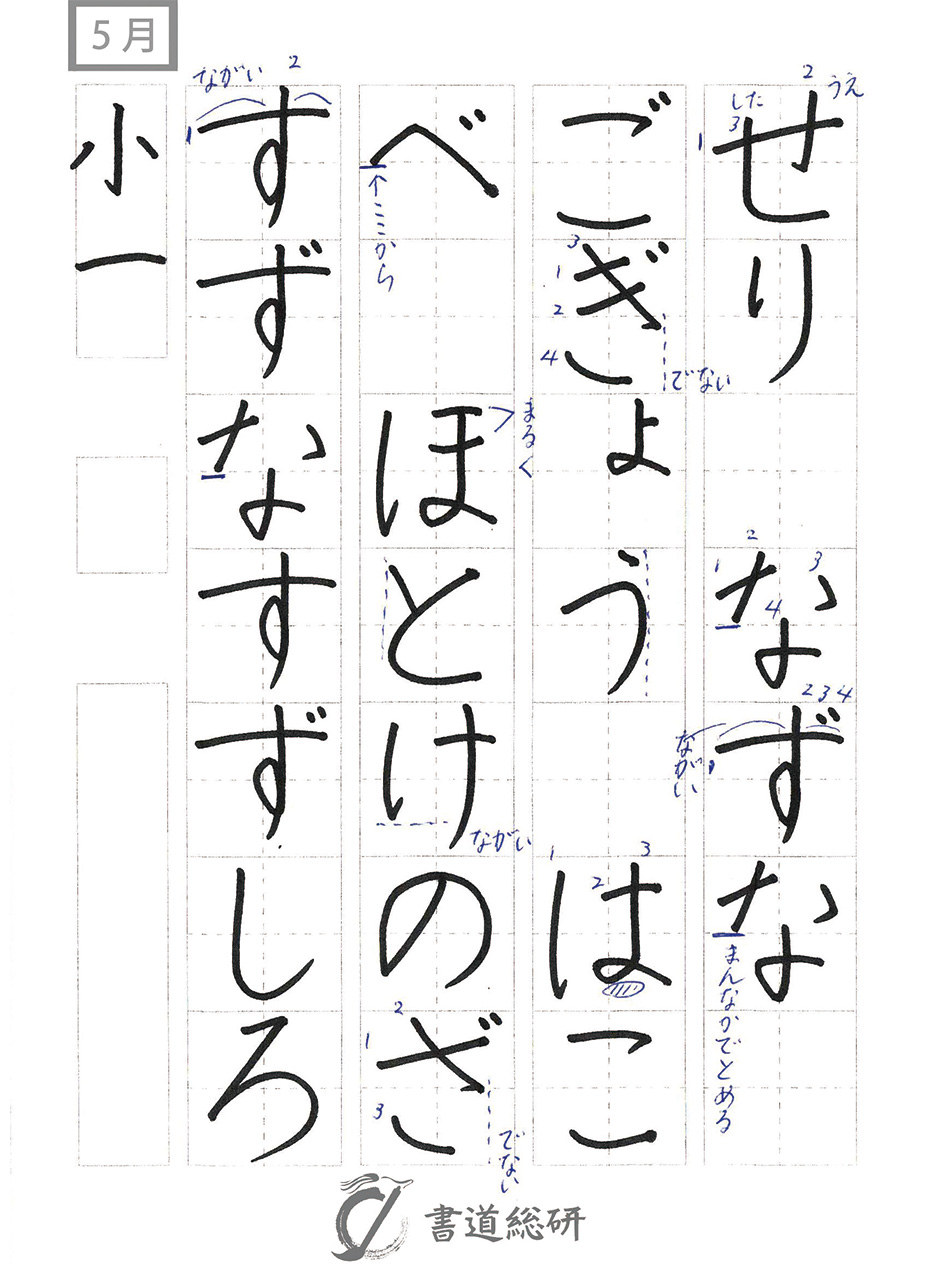 5月
せり なずな
ごぎょう はこ
べ ほとけのざ
すずなすずしろ
小一
2
うえ
した
3
1
1
2
3
4
2 3 4
ながい
まんなかでとめる
3
1
2
4
でない
1
2
3
↑ここから
まるく
ながい
1
2
3
でない
ながい
2
1
書道総研